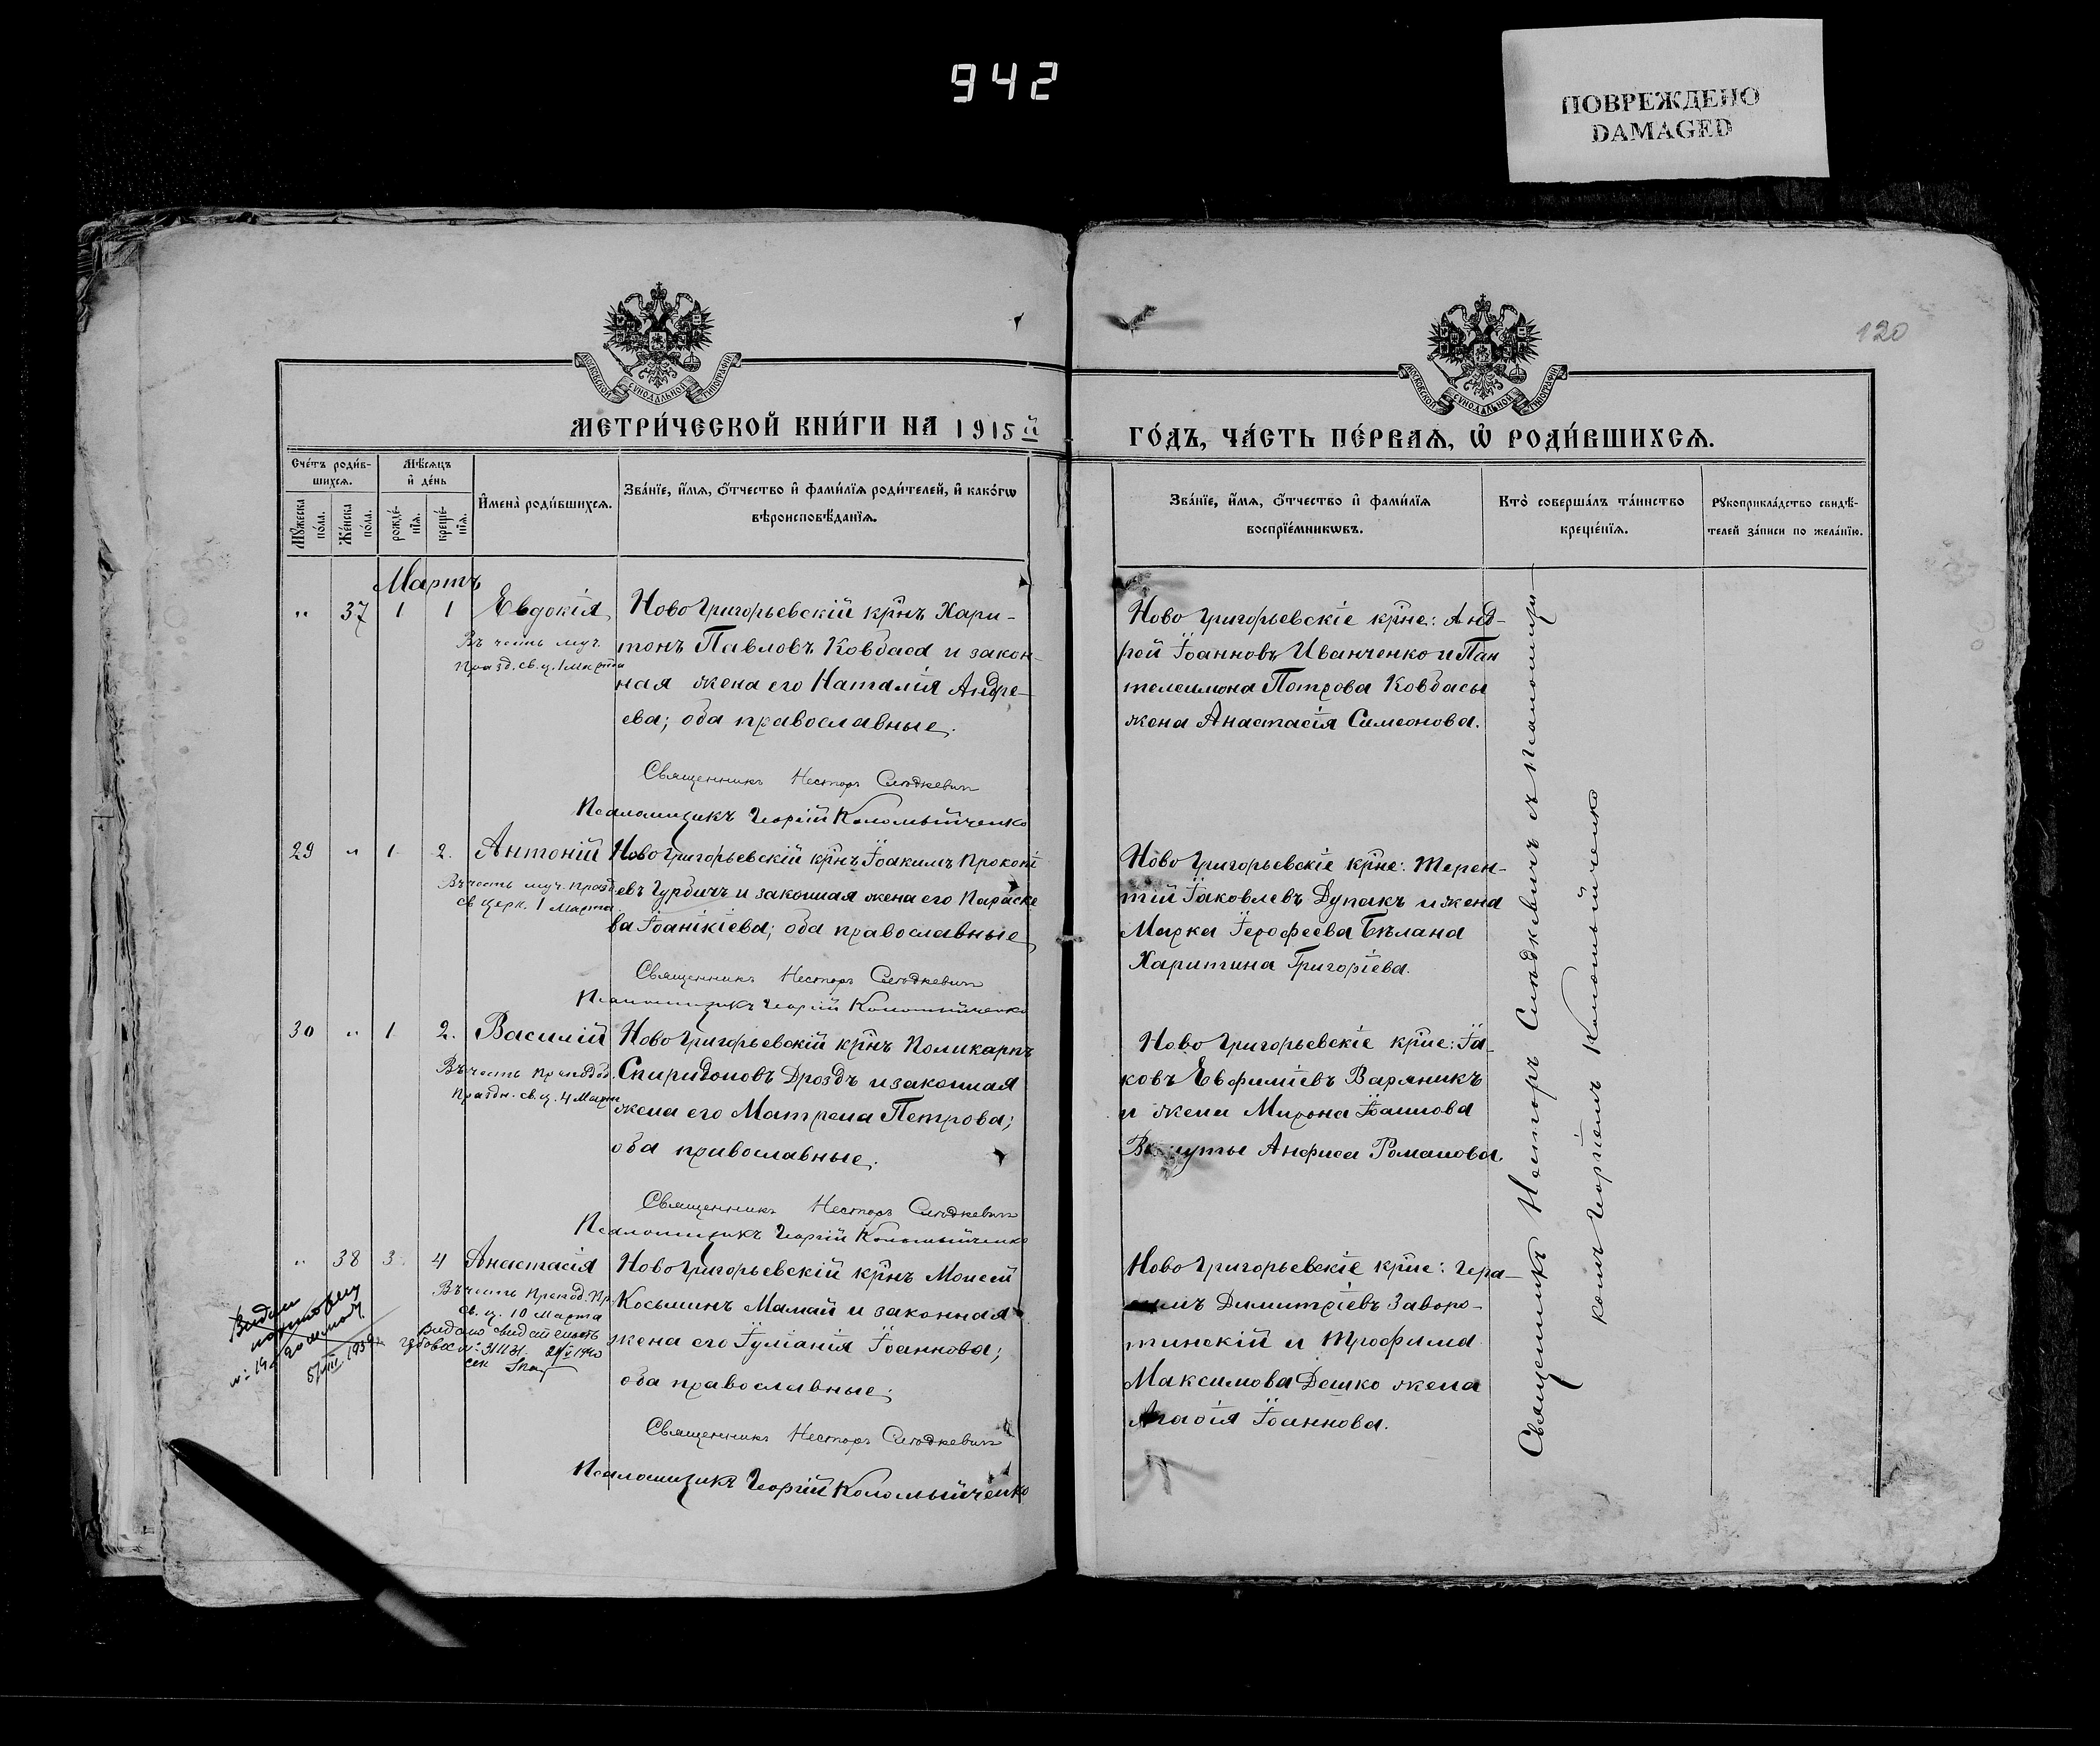 942
ПОВРЕЖДЕНО
DAMAGED
120
МОСКОВСКОЙ СУНОДАЛЬНОЙ ТИПОГРАФІИ
МОСКОВСКОЙ СУНОДАЛЬНОЙ ТИПОГРАФІИ
МЕТРИ́ЧЕСКОЙ КНИ́ГИ НА 1915й
ГО́ДЪ, ЧА́СТЬ ПЕ́РВАѦ, Ѡ РОДИ́ВШИХСѦ.
Сче́тъ роди́в-
шихсѧ.
Мꙋ́жеска по́ла.
Же́нска по́ла.
Мѣ́сѧцъ
и҆ де́нь
рожде́-
нїѧ.
креще́-
нїѧ.
И҆мена̀ роди́вшихсѧ.
Зва́нїе, и҆́мѧ, ѻ҆́тчество и҆ фами́лїѧ роди́телей, и҆ како́гѡ
вѣроисповѣ́данїѧ.
Зва́нїе, и҆́мѧ, ѻ҆́тчество и҆ фами́лїѧ
воспрїе́мникѡвъ.
Кто̀ соверша́лъ та́инство
креще́нїѧ.
Рꙋкоприкла́дство свидѣ́-
телей за́писи по жела́нїю.
Мартъ
" 37 1 1 Евдокія
Въ честь муч.
празд. св. ц. 1 Марта
Новогригорьевскій крнъ Хари-
тонъ Павловъ Ковбаса и закон-
ная жена его Наталія Андре-
ева; оба православные.
Священникъ Несторъ
Псаломщикъ Георгій Коломыйченко
Новогригорьевскіе крне: Анд-
рей Іоанновъ Иванченко и Пан
телеимона Петрова Ковбасы
жена Анастасія Симеонова.
29 " 1 2. Антоній
Въ честь муч. празд
св церк. 1 Марта
Новогригорьевскій крнъ Іоакимъ Прокопі
евъ Гурбичъ и законная жена его Параске
ва Іоанікіева; оба православные
Священникъ Несторъ
Псаломщикъ Георгій Коломыйченко
Новогригорьевскіе крне: Терен-
тій Іаковлевъ Дупакъ и жена
Марка Іерофеева Бѣлана
Харитина Григоріева.
30 " 1 2. Василій
Въ честь преподоб.
праздн. св. ц. 4 Марта
Новогригорьевскій крнъ Поликарпъ
Спиридоновъ Дроздъ и законная
жена его Матрена Петрова;
оба православные.
Священникъ Несторъ
Псаломщикъ Георгій Коломыйченко
Новогригорьевскіе крне: Іа-
ковъ Евфиміевъ Вареникъ
и жена Мирона Іоаннова
Анфиса Романова.
" 38 3 4 Анастасія
Въ честь Препод. пр.
св. ц. 10 Марта
Новогригорьевскій крнъ Моисей
Косьминъ Мамай и законная
жена его Іуліанія Іоаннова;
оба православные.
Священникъ Несторъ
Псаломщикъ Георгій Коломыйченко
Новогригорьевскіе крне: Гера-
симъ Димитріевъ Заворо-
тинскій и Трофима
Максимова Дешко жена
Агафія Іоаннова.
Священникъ Несторъ съ псаломщи-
комъ Георгіемъ Коломыйченко